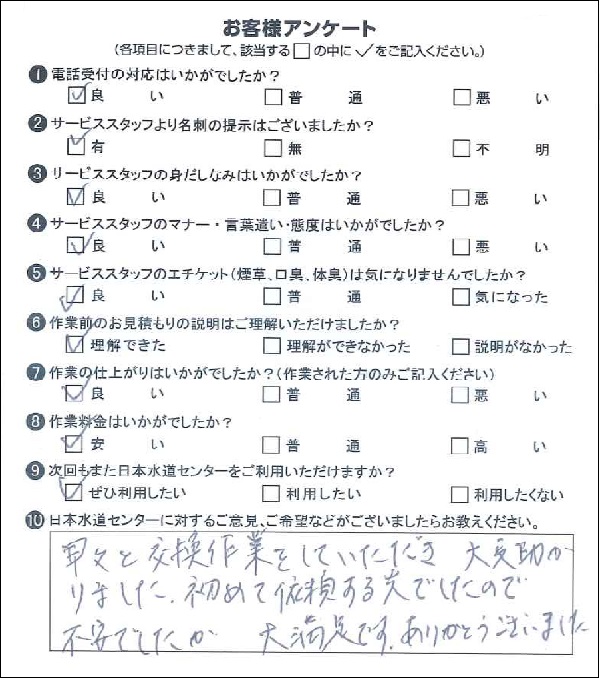 お客様アンケート
(各項目につきまして、該当する□の中に✓をご記入ください。)
❶電話受付の対応はいかがでしたか?
☑良い □普通 □悪い
❷サービススタッフより名刺の提示はございましたか?
☑有 □無 □不明
❸サービススタッフの身だしなみはいかがでしたか?
☑良い □普通 □悪い
❹サービススタッフのマナー・言葉遣い・態度はいかがでしたか?
☑良い □普通 □悪い
❺サービススタッフのエチケット(煙草、口臭、体臭)は気になりませんでしたか?
☑良い □普通 □気になった
❻作業前のお見積もりの説明はご理解いただけましたか?
☑理解できた □理解ができなかった □説明がなかった
❼作業の仕上がりはいかがでしたか?(作業された方のみご記入ください)
☑良い □普通 □悪い
❽作業料金はいかがでしたか?
☑安い □普通 □高い
❾次回もまた日本水道センターをご利用いただけますか?
☑ぜひ利用したい □利用したい □利用したくない
❿日本水道センターに対するご意見、ご希望などがございましたらお教えください。
早々と交換作業をしていただき 大変助か
りました。初めて依頼する所でしたので
不安でしたが 大満足です。ありがとうございました